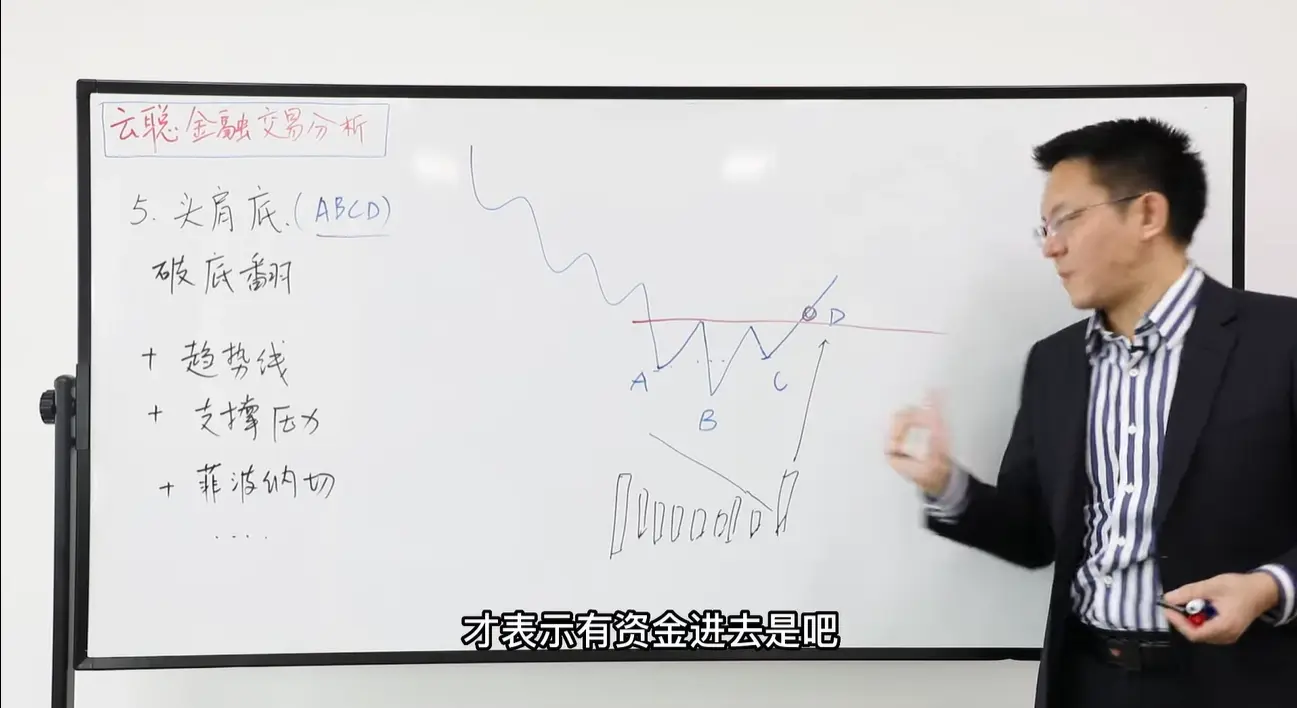 云聪金融交易分析
5. 头肩底.(ABCD)
破底翻
+ 趋势线
+ 支撑压力
+ 菲波纳切
....
D
A
C
B
才表示有资金进去是吧